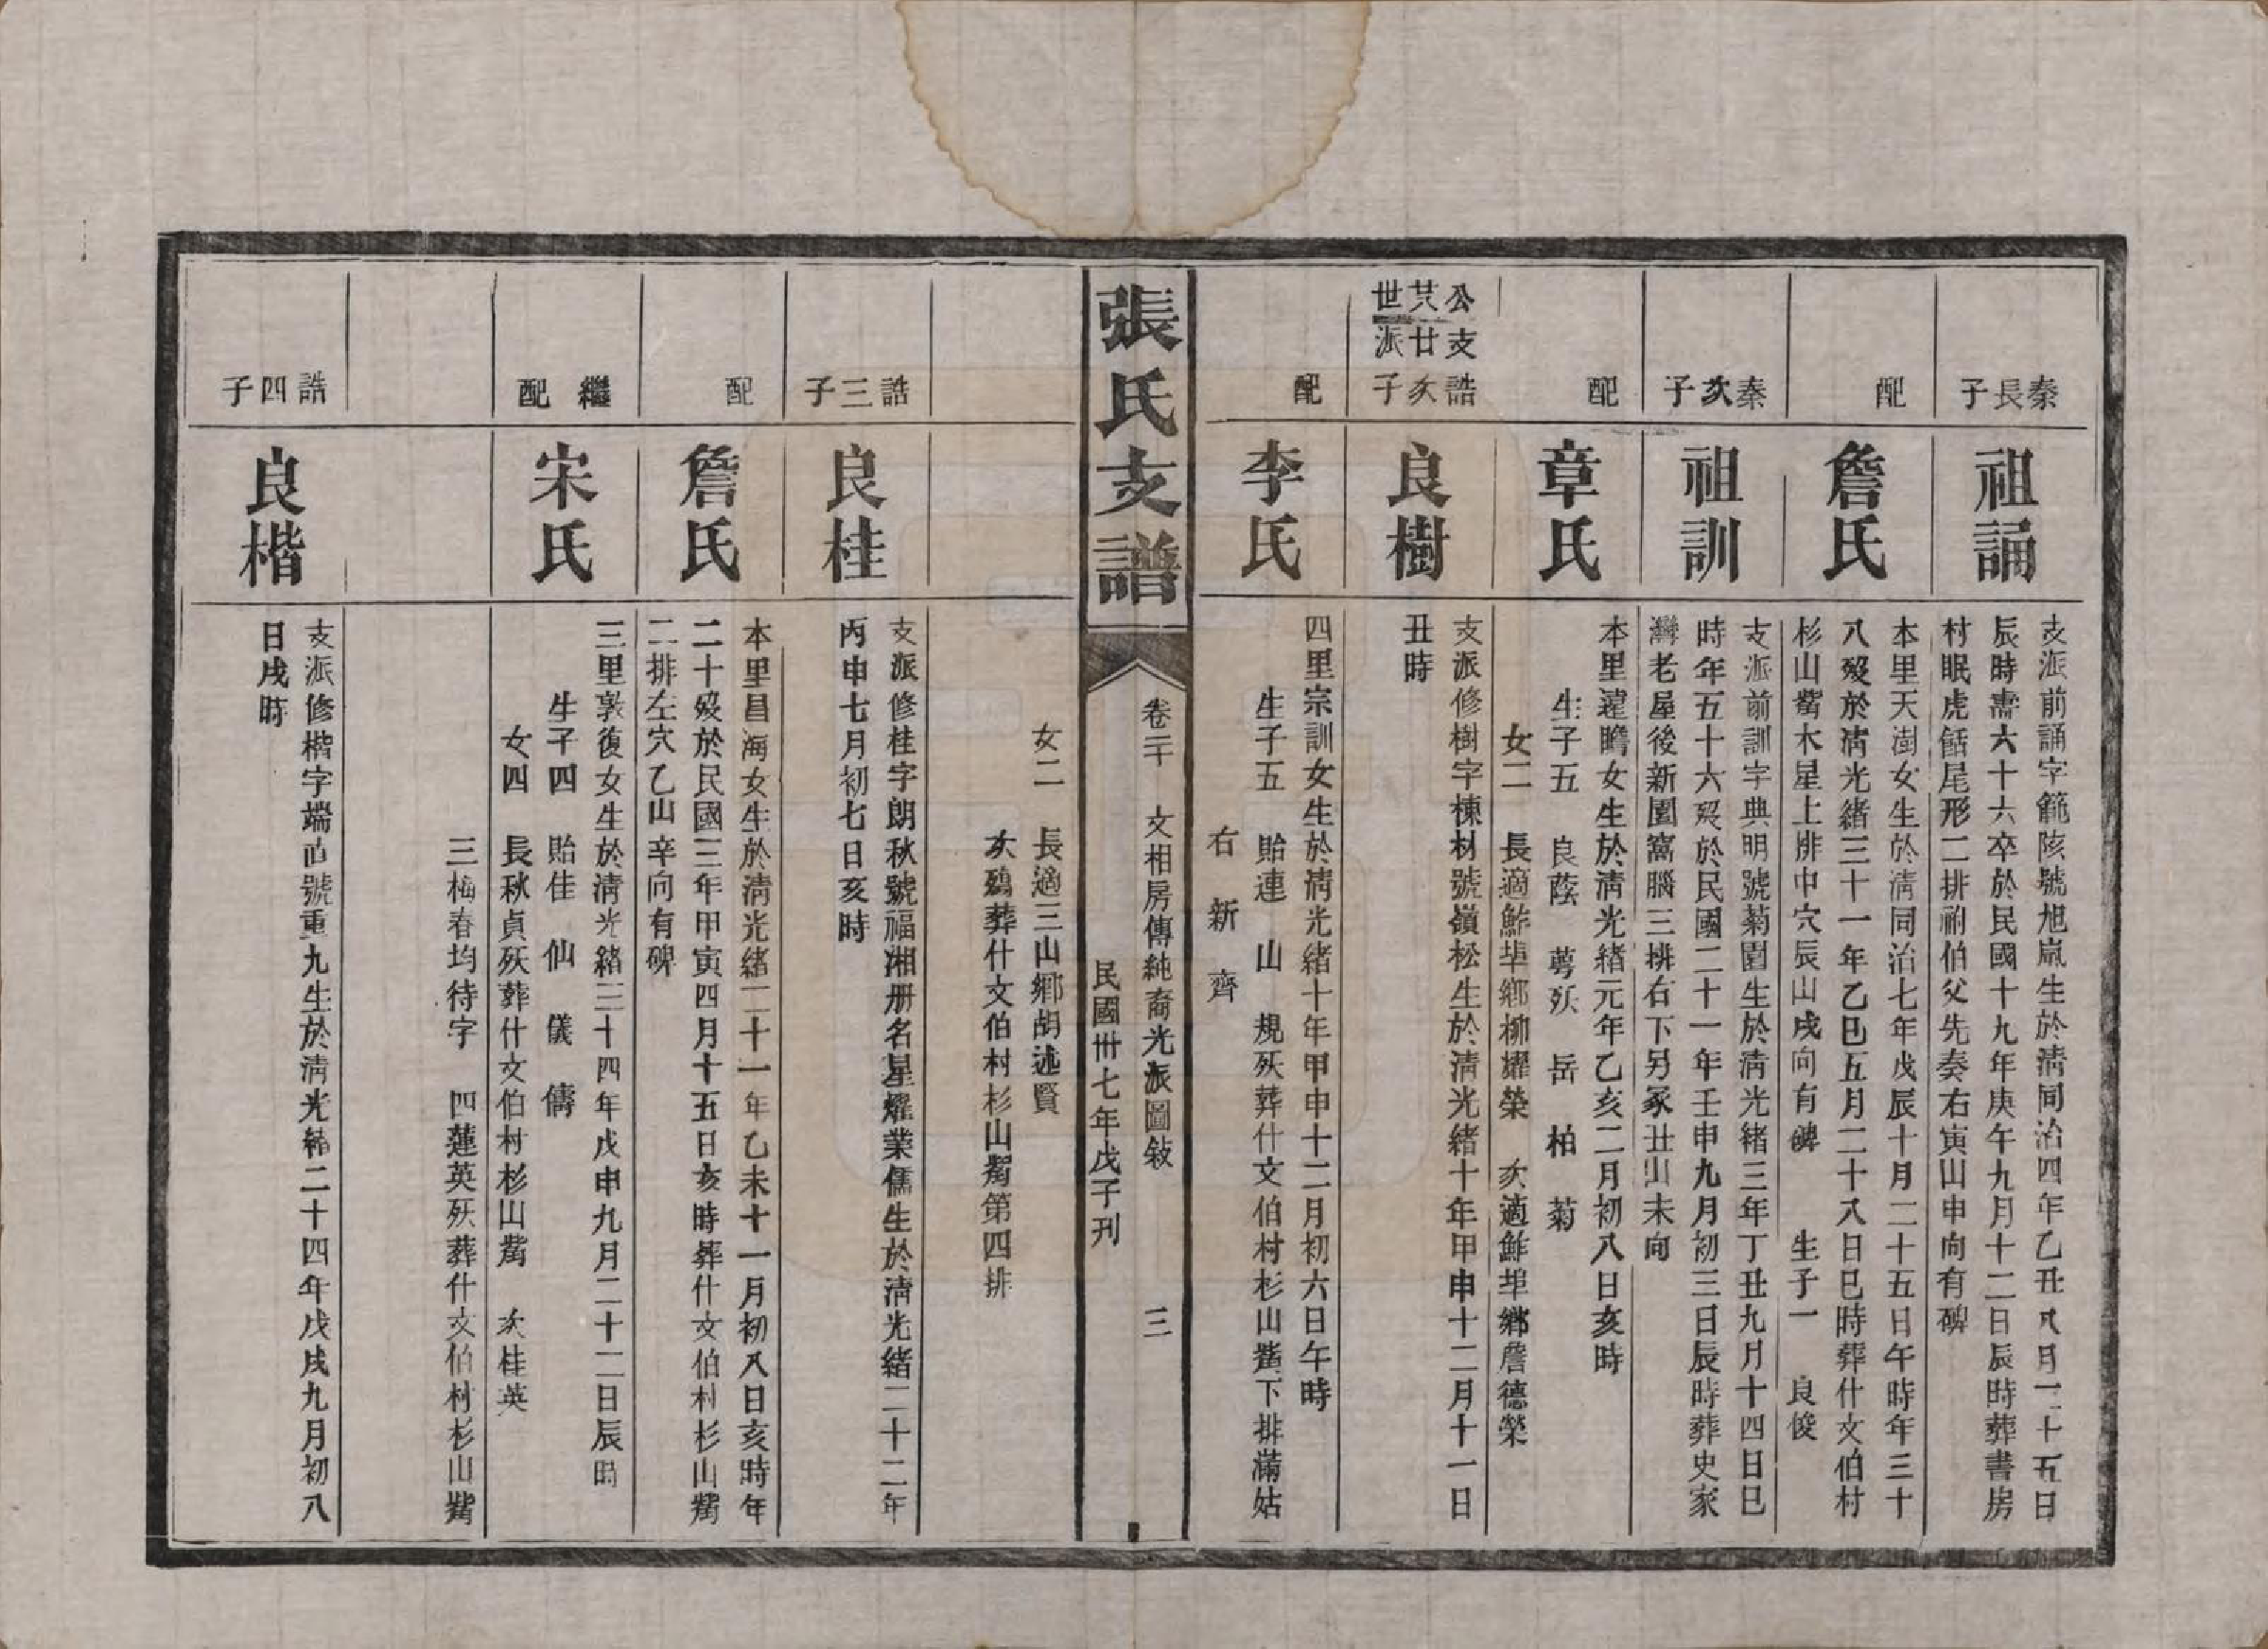 秦長子
祖誦
支派前誦字範陔號旭嵐生於清同治四年乙丑八月二十五日
辰時壽六十六卒於民國十九年庚午九月十二日辰時葬書房
村眠虎餂尾形二排祔伯父先奏右寅山申向有碑
配
詹氏
本里天澍女生於清同治七年戊辰十月二十五日午時年三十
八歿於清光緒三十一年乙巳五月二十八日巳時葬什文伯村
杉山觜木星上排中穴辰山戌向有碑 生子一 良俊
秦次子
祖訓
支派前訓字典明號菊園生於清光緒三年丁丑九月十四日巳
時年五十六歿於民國二十一年壬申九月初三日辰時葬史家
灣老屋後新園窩腦三排右下另冢丑山未向
配
章氏
本里遠瞻女生於清光緒元年乙亥二月初八日亥時
生子五 良蔭 蕚殀 岳 柏 菊
女二 長適鮓埠鄉柳耀榮 次適鮓埠鄉詹德榮
公支誥
芃廿次
世派子
良樹
支派修樹字棟材號嶺松生於清光緒十年甲申十二月十一日
丑時
配
李氏
四里宗訓女生於清光緒十年甲申十二月初六日午時
生子五 貽連 山 規殀葬什文伯村杉山觜下排滿姑
右 新 齊
張氏支譜
卷二十 文相房傳純裔光派圖敘 三
民國卅七年戊子刊
女二 長適三山鄉胡述賢
次殤葬什文伯村杉山觜第四排
誥三子
良桂
支派修桂字朗秋號福湘册名星燿業儒生於清光緒二十二年
丙申七月初七日亥時
配
詹氏
本里昌海女生於清光緒二十一年乙未十一月初八日亥時年
二十歿於民國三年甲寅四月十五日亥時葬什文伯村杉山觜
二排左穴乙山辛向有碑
繼配
宋氏
三里敦復女生於清光緒三十四年戊申九月二十二日辰時
生子四 貽佳 仙 儀 儔
女四 長秋貞殀葬什文伯村杉山觜 次桂英
三梅春均待字 四蓮英殀葬什文伯村杉山觜
誥四子
良楷
支派修楷字端直號重九生於清光緒二十四年戊戌九月初八
日戌時